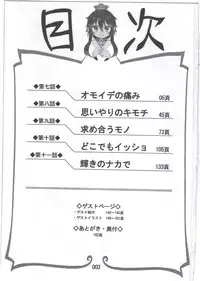 目次
◆第七話◆ オモイデの痛み 05頁
◆第八話◆ 思いやりのキモチ 45頁
◆第九話◆ 求め合うモノ 73頁
◆第十話◆ どこでもイッショ 105頁
◆第十一話◆ 輝きのナカで 133頁
◇ゲストページ◇
・ゲスト紹介
・ゲストイラスト
◇あとがき・奥付◇
003